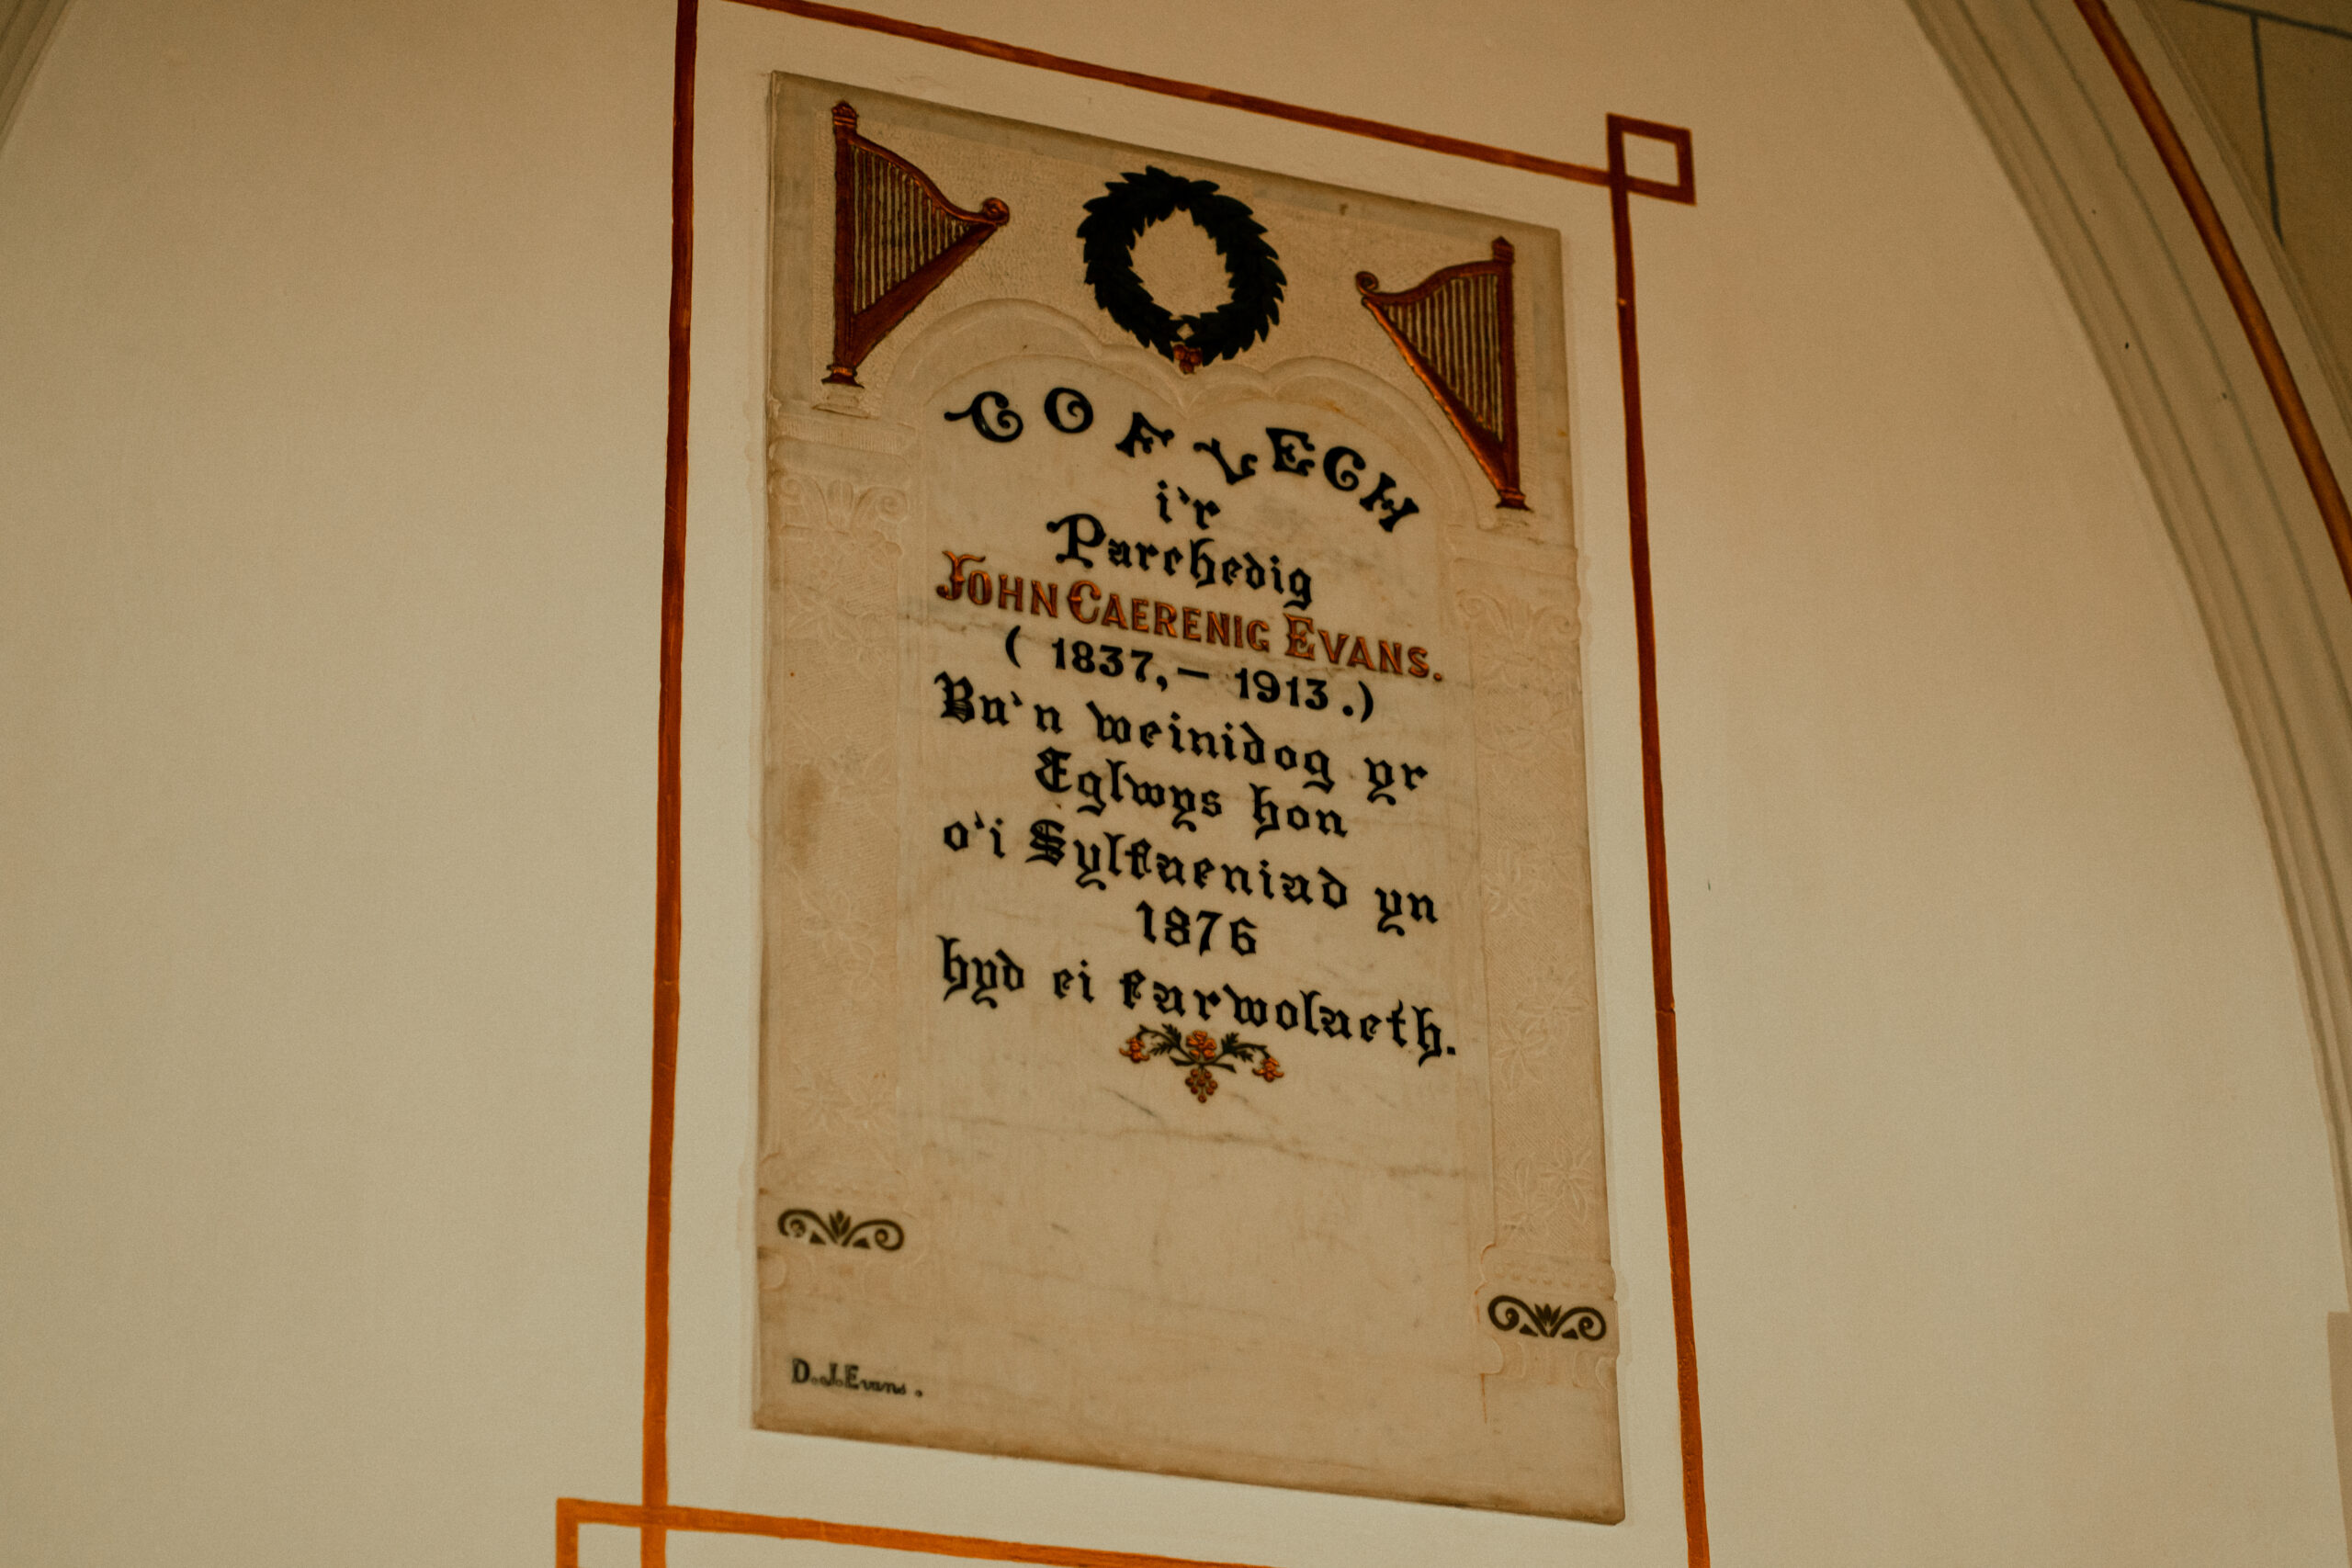 COFLECH
i'r
Parchedig
JOHN CAERENIG EVANS.
( 1837,— 1913.)
Bu'n weinidog yr
Eglwys hon
o'i Sylfaeniad yn
1876
hyd ei farwolaeth.
D.J.Evans.